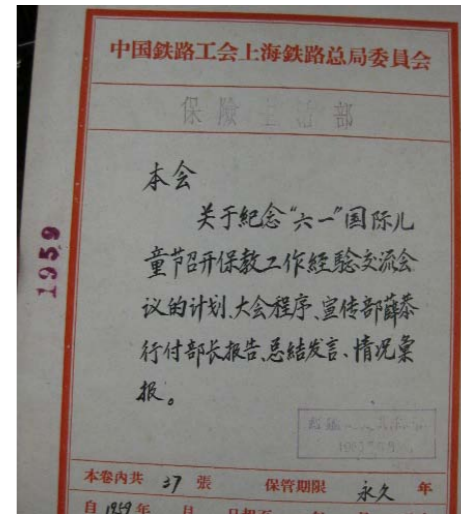 中国鉄路工会上海鉄路总局委員会
保險生活部
本会
关于紀念“六一”国际儿
童节召开保教工作經驗交流会
议的计划、大会程序、宣传部薛泰
行付部长报告、总結发言、情况彙
报。
1959
本卷內共 37 張 保管期限 永久 年
自 1959 年 月